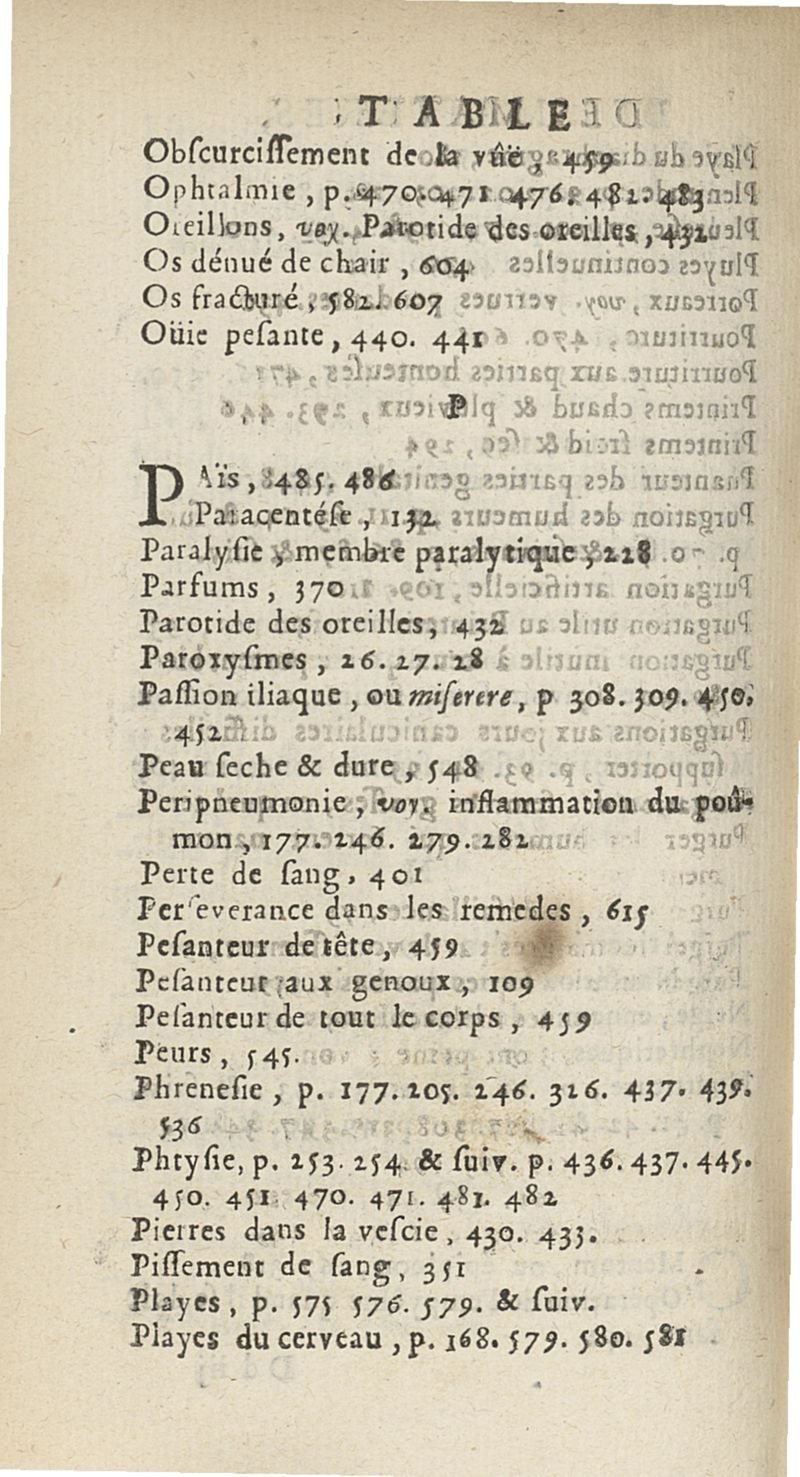 TABLE
Obſcurciſſement de la vûë, 459
Ophtalmie, p. 470. 471 476. 481. 483
Oreillons, voy. Parotide des oreilles, 432
Os dénué de chair, 604
Os fracturé, 582. 607
Oüie peſante, 440. 441
P
PAïs, 485. 486
Paracentéſe, 132
Paralyſie, membre paralytique, 228
Parfums, 370
Parotide des oreilles, 432
Paroxyſmes, 26. 27. 28
Paſſion iliaque, ou miſerere, p 308. 309. 450.
452
Peau ſeche & dure, 548
Peripneumonie, voy. inflammation du poû-
mon, 177. 246. 279. 282
Perte de ſang, 401
Perſeverance dans les remedes, 615
Peſanteur de tête, 459
Peſanteur aux genoux, 109
Peſanteur de tout le corps, 459
Peurs, 545.
Phreneſie, p. 177. 205. 246. 326. 437. 439.
536
Phtyſie, p. 253. 254. & ſuiv. p. 436. 437. 445.
450. 451. 470. 471. 481. 482
Pierres dans la veſcie, 430. 433.
Piſſement de ſang, 351
Playes, p. 575 576. 579. & ſuiv.
Playes du cerveau, p. 168. 579. 580. 581